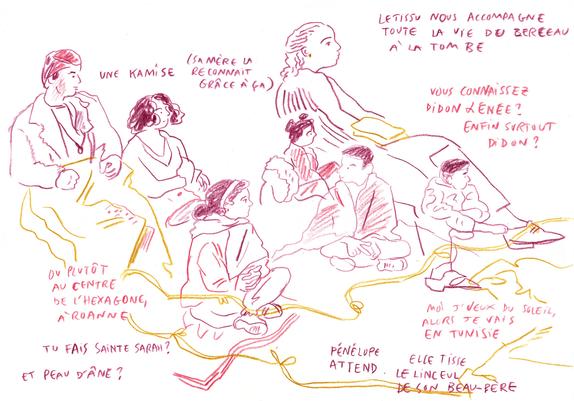 LE TISSU NOUS ACCOMPAGNE
TOUTE LA VIE DU BERCEAU
À LA TOMBE
UNE KAMISE
(SA MÈRE LA
RECONNAIT
GRÂCE À ÇA)
VOUS CONNAISSEZ
DIDON & ENÉE?
ENFIN SURTOUT
DIDON?
OU PLUTÔT
AU CENTRE
DE L'HEXAGONE,
À ROANNE
TU FAIS SAINTE SARAH?
ET PEAU D'ÂNE?
MOI J'VEUX DU SOLEIL,
ALORS JE VAIS
EN TUNISIE
PÉNÉLOPE
ATTEND.
ELLE TISSE
LE LINCEUL
DE SON BEAU-PERE